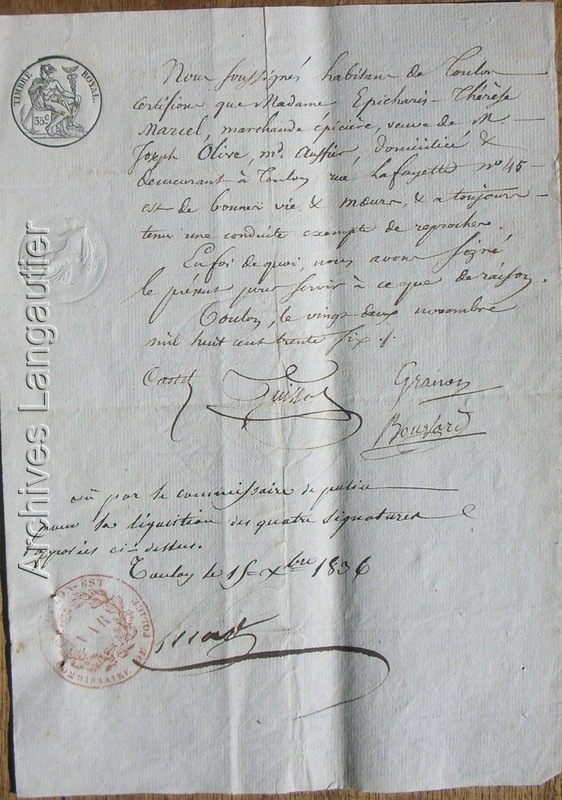 TIMBRE ROYAL
35c
Nous soussignés habitans de Toulon
certifions que Madame Epicharis-Thérèse
Marcel, marchande épicière, veuve de M
Joseph Olive, md. Auffier, domiciliée &
demeurant à Toulon rue Lafayette n° 45
est de bonnes vie & mœurs, & a toujours
tenu une conduite exempte de reproches.
En foi de quoi, nous avons signé
le présent pour servir à ce que de raison.
Toulon, le vingt deux novembre
mil huit cent trente six
Castel
Granon
Bougard
vu par le commissaire de police
pour la légalition des quatre signatures
apposées ci-dessus.
Toulon le 15 Xbre 1836
EST
VAR
COMMISSAIRE DE POLICE
Archives Langautier